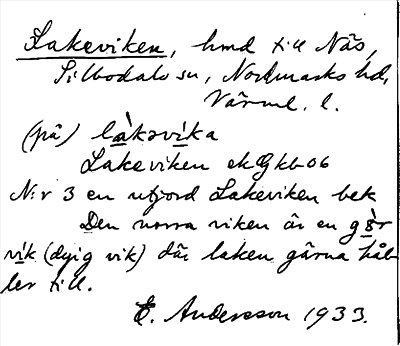 Lakeviken, hmd till Näs,
Silbodals sn, Nordmarks hd,
Värml. l.
(på) là̱kəvi̱ka
Lakeviken ekGkb-06
N:r 3 en utfjord Lakeviken bek
Den norra viken är en gö̱r
vi̱k (dyig vik) där laken gärna hål-
ler till.
E. Andersson 1933.